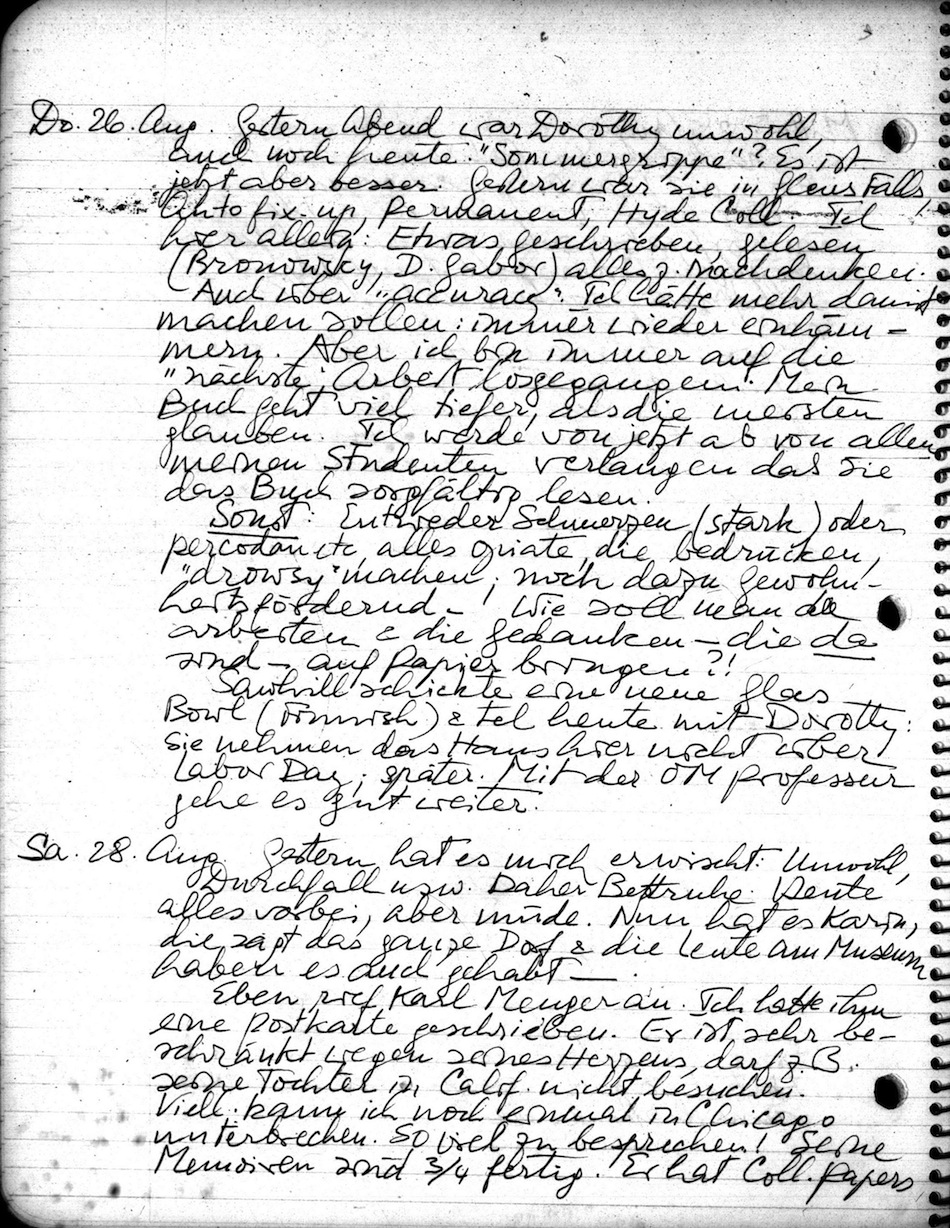 Do. 26. Aug. Gestern Abend war Dorothy unwohl,
auch noch heute. "Sommergrippe"? Es ist
jetzt aber besser. Gestern war sie in Glens Falls,
Auto fix-up, Permanent, Hyde Coll. Ich
hier allein: Etwas geschrieben, gelesen
(Bronowsky, D. Gabor) alles z. Nachdenken.
Auch über "accuracy". Ich hätte mehr damit
machen sollen: immer wieder einhäm-
mern. Aber ich bin immer auf die
"nächste" Arbeit losgegangen. Mein
Buch geht viel tiefer, als die meisten
glauben. Ich werde von jetzt ab von allen
meinen Studenten verlangen das sie
das Buch sorgfältig lesen.
Sonst: Entweder Schmerzen (stark) oder
percodan etc, alles Opiate, die bedrücken,
"drowsy" machen, noch dazu gewohn-
heitsfördernd – Wie soll man da
arbeiten & die Gedanken – die da
sind – auf Papier bringen?!
Sawhill schickte eine neue Glas
Bowl (römisch) & tel heute mit Dorothy:
Sie nehmen das Haus hier nicht über
Labor Day; später. Mit der OM professur
gehe es gut weiter.
Sa. 28. Aug. Gestern hat es mich erwischt: Unwohl,
Durchfall usw. Daher Bettruhe. Heute
alles vorbei, aber müde. Nun hat es Karin,
die sagt das ganze Dorf & die Leute am Museum
haben es auch gehabt –
Eben rief Karl Menger an. Ich hatte ihm
eine Postkarte geschrieben. Er ist sehr be-
schränkt wegen seines Herzens, darf z.B.
seine Tochter in Calif. nicht besuchen.
Viell. kann ich noch einmal in Chicago
unterbrechen. So viel zu besprechen! Seine
Memoiren sind 3/4 fertig. Er hat Coll. papers